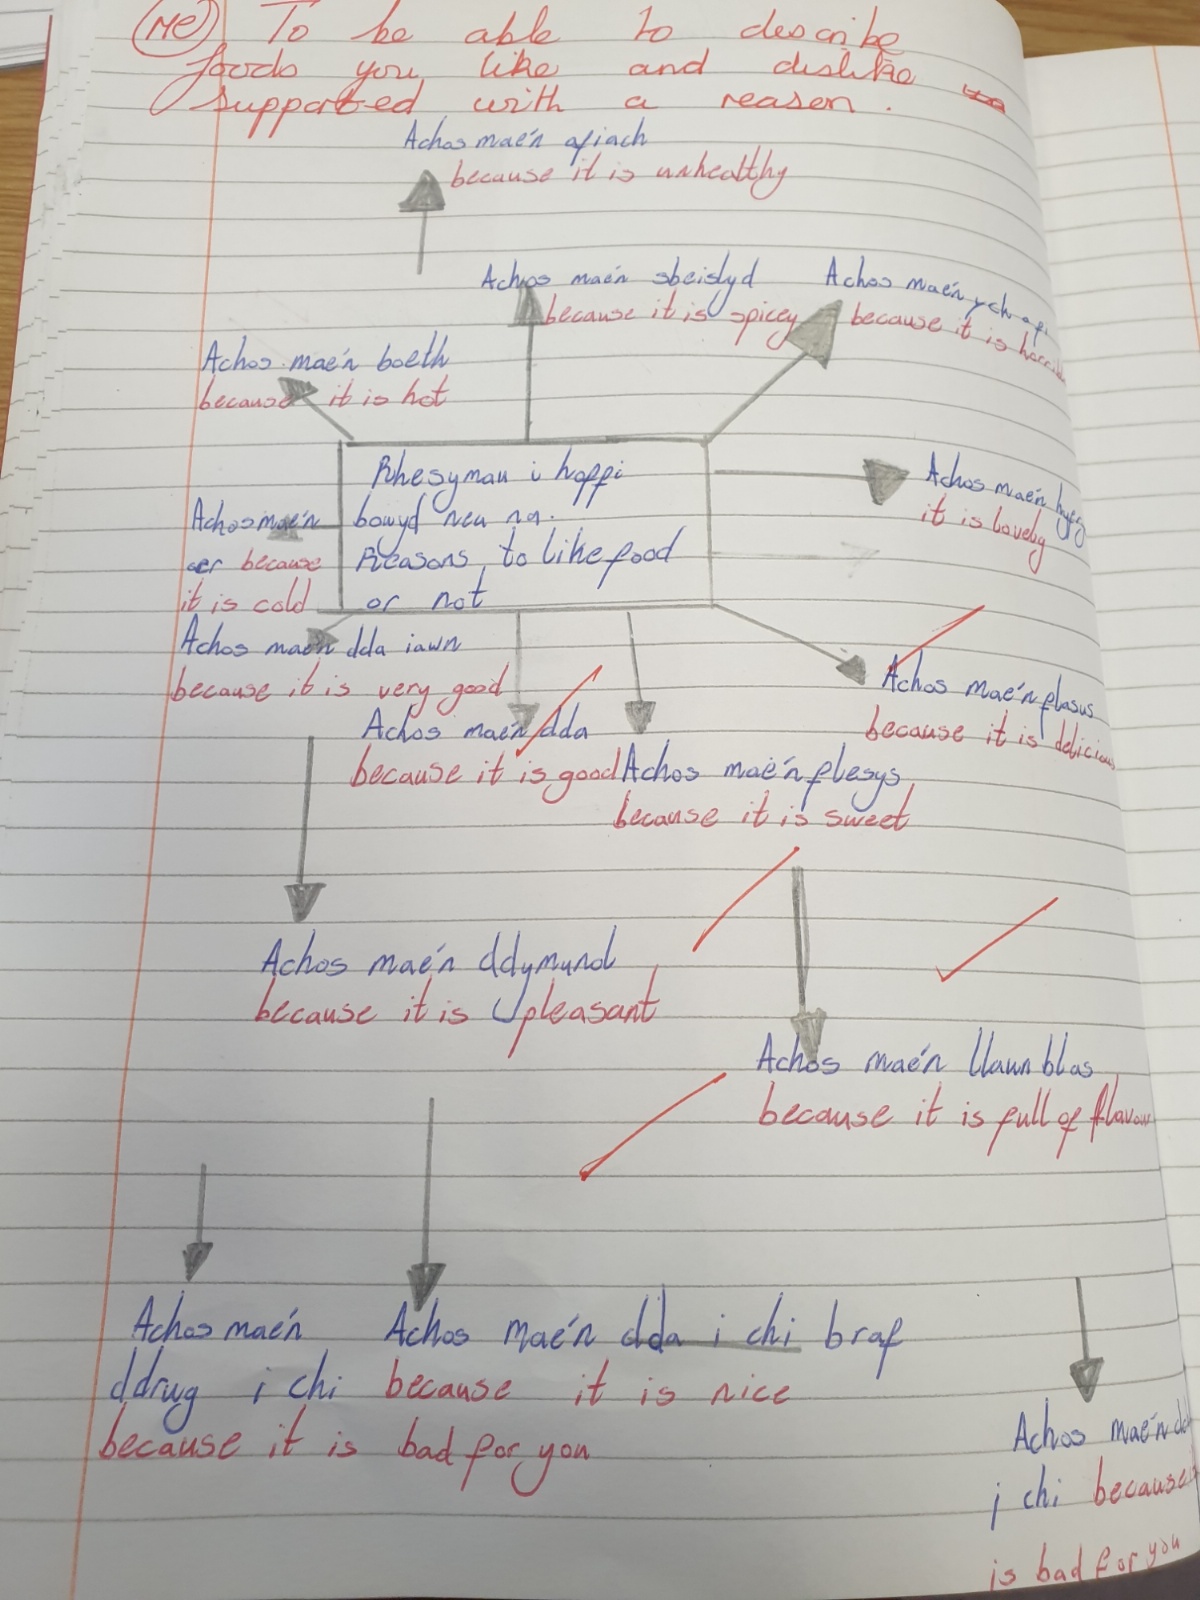 Me To be able to describe
foods you like and dislike
supported with a reason.
Achos mae'n afiach
because it is unhealthy
Achos mae'n sbeislyd
because it is spicey
Achos mae'n ychafi
because it is
Achos mae'n boeth
because it is hot
Rhesymau i hoffi
bowyd neu na.
Reasons to like food
or not
Achos mae'n
oer because
it is cold
Achos mae'n hyfryd
it is lovely
Achos mae'n dda iawn
because it is very good
Achos mae'n flasus
because it is delicious
Achos mae'n dda
because it is good
Achos mae'n flesys
because it is sweet
Achos mae'n ddymunol
because it is pleasant
Achos mae'n llawn blas
because it is full of flavour
Achos mae'n
ddrwg i chi
because it is bad for you
Achos mae'n dda i chi braf
because it is nice
Achos mae'n
i chi because
is bad for you